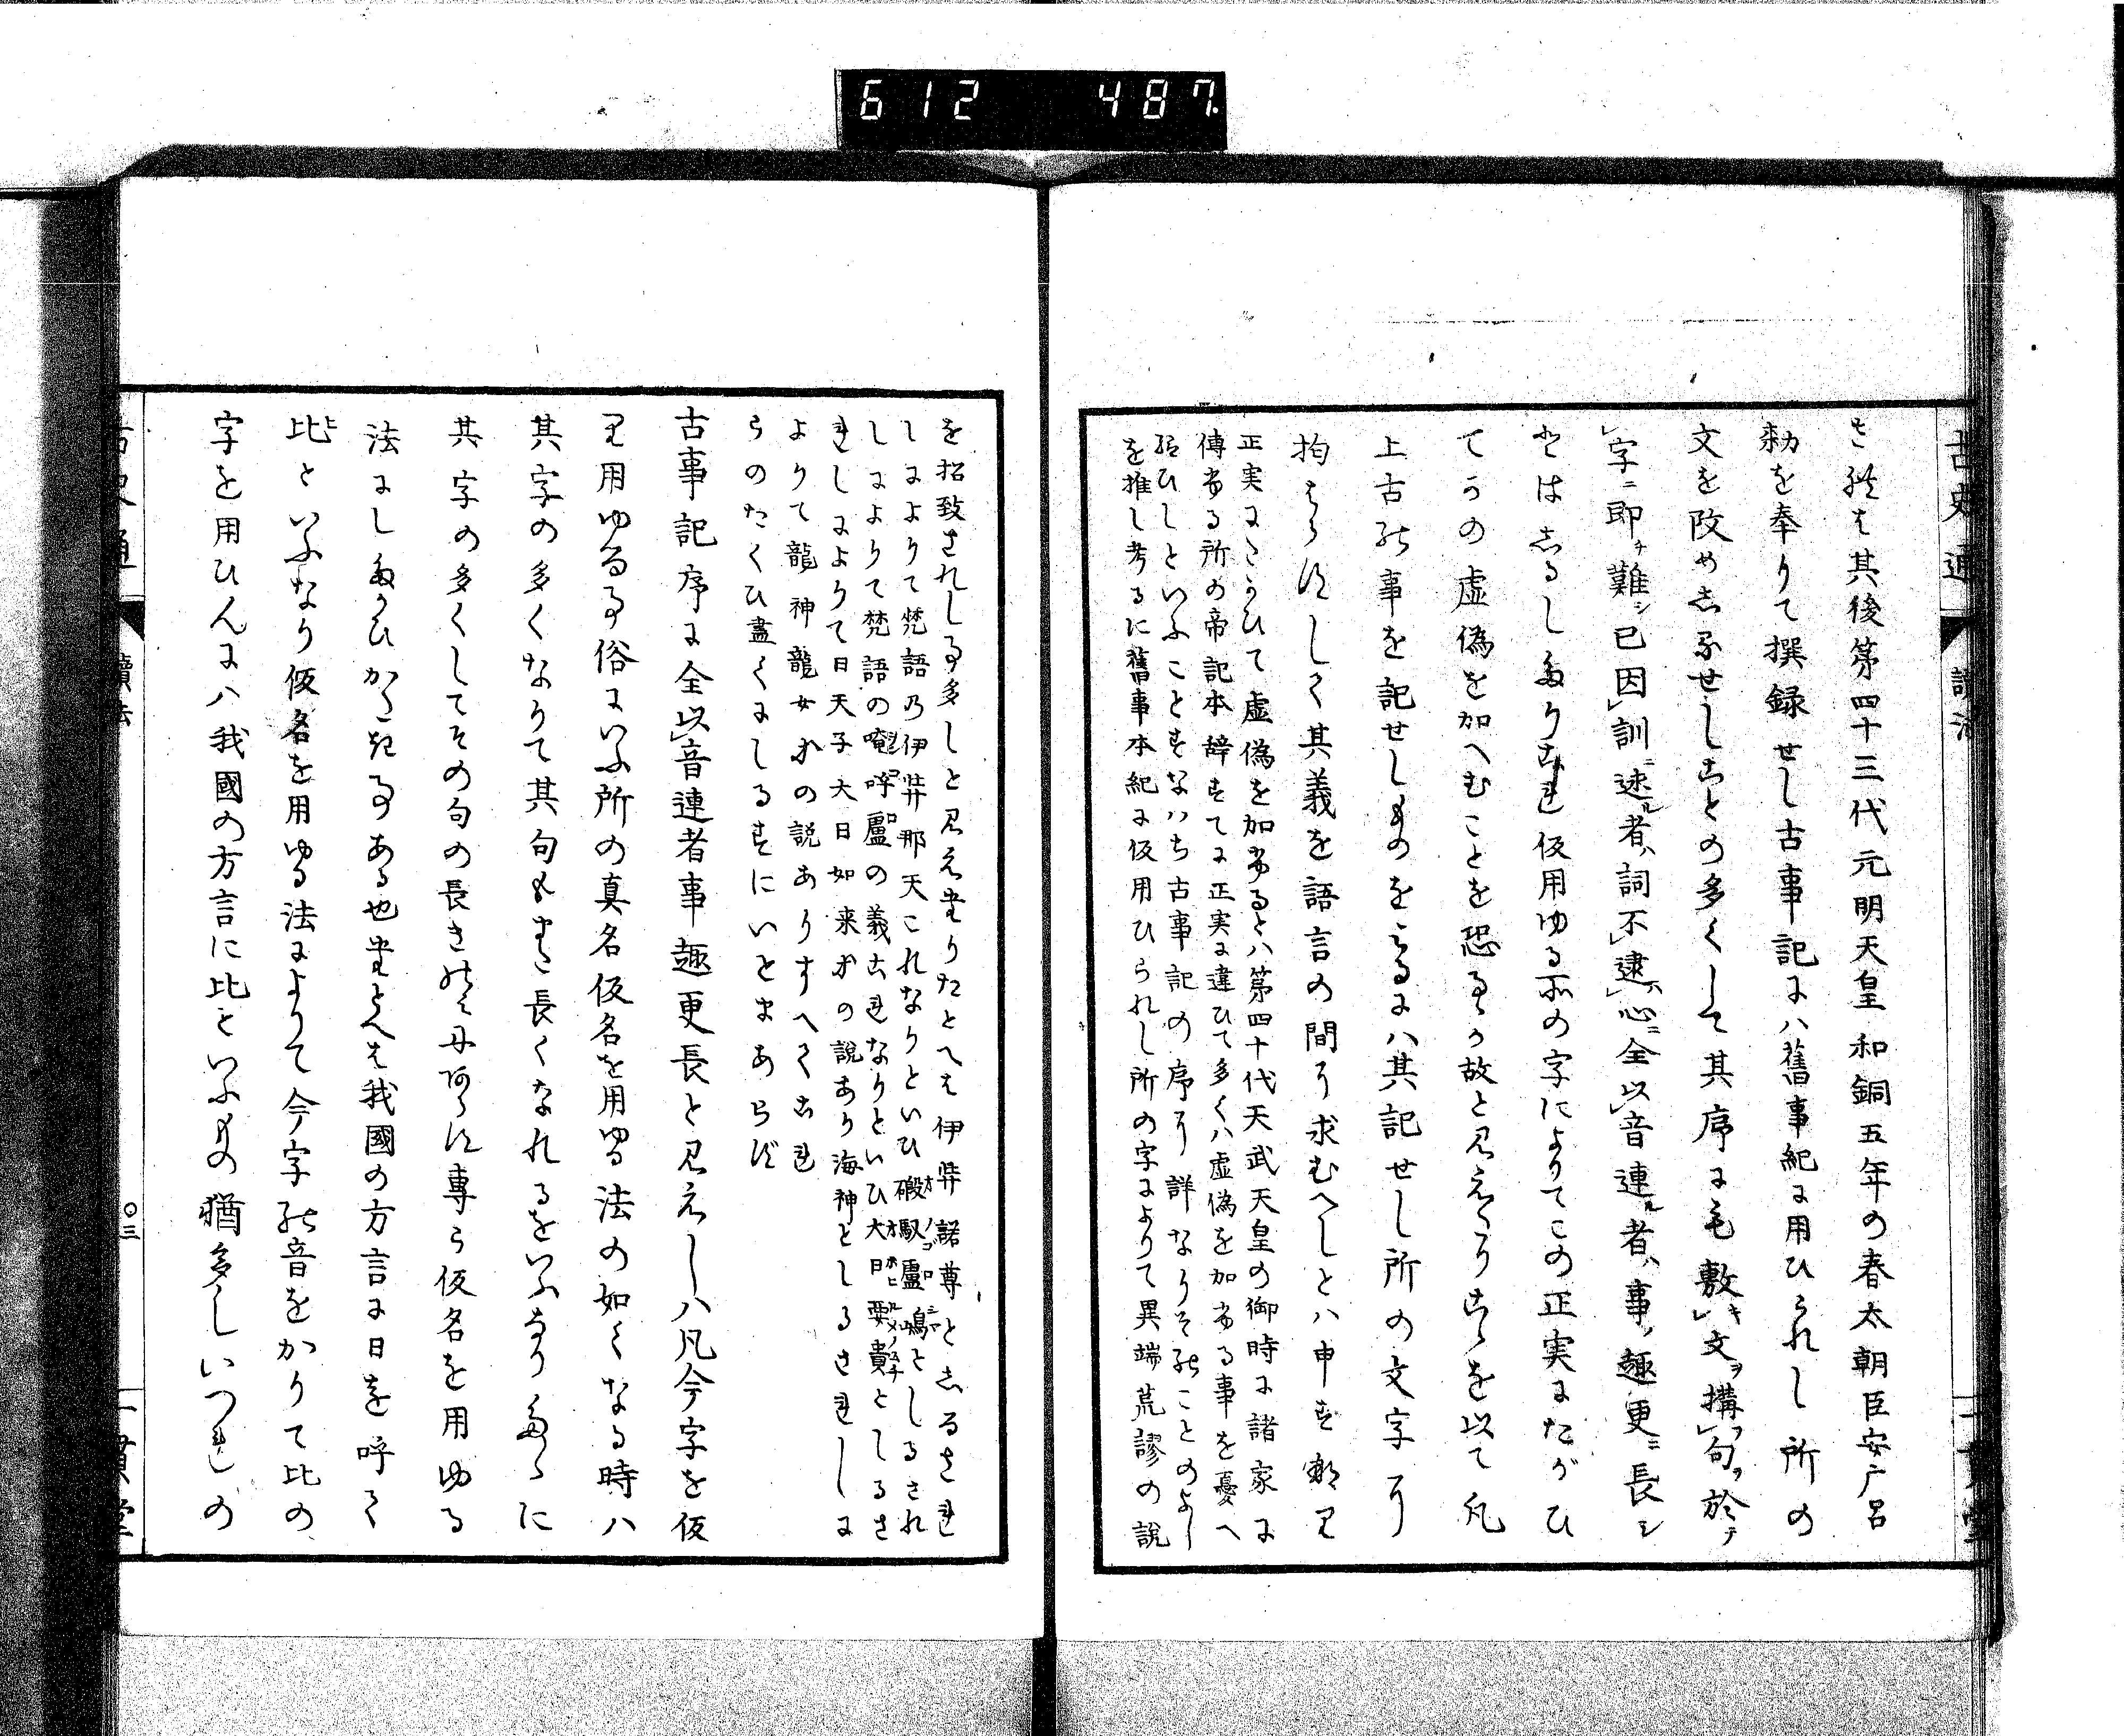 612 487
古史通
讀法
されは其後第四十三代元明天皇和銅五年の春太朝臣安广呂
勅を奉りて撰録せし古事記には舊事紀に用ひられし所の
文を改めしるせしことの多くして其序にも敷キ文ヲ搆フ句ヲ於テ
字ニ即チ難シ已因訓ニ述ル者ハ詞不逮ハ心ニ全以音連ル者ハ事ノ趣更ニ長シ
とはしるしたりこれ仮用ゆる所の字によりてこの正実にたがひ
てかの虚偽を加へむことを恐るゝか故と見えたりこゝを以て凡
上古の事を記せしものをみるには其記せし所の文字に
拘はらずして其義を語言の間に求むへしとは申す也
正実にたかひて虚偽を加ふるとは第四十代天武天皇の御時に諸家に
傳ふる所の帝記本辞すてに正実に違ひて多くは虚偽を加ふる事を憂へ
給ひしといふことすなはち古事記の序に詳なりそのことのよし
を推し考るに舊事本紀に仮用ひられし所の字によりて異端荒謬の説
を招致されし多しと見えたりたとへは伊弉諾尊としるされ
しによりて梵語乃伊弉那天これなりといひ磤馭盧嶋としるされ
しによりて梵語の唵呼盧の義これなりといひ大日孁貴としるさ
れしによりて日天子大日如来の説あり海神としるされしに
よりて龍神龍女の説ありすへてこれ
らのたくひ盡くにしるすにいとまあらず
古事記序に全以音連者事趣更長と見えしは凡今字を仮
り用ゆる事俗にいふ所の真名仮名を用ゆる法の如くなる時は
其字の多くなりて其句もまた長くなれるをいふなり
其字の多くしてその句の長きのみにあらす專ら仮名を用ゆる
法にしたかひかたき事ある也たとへは我國の方言に日を呼て
比といふなり仮名を用ゆる法によりて今字の音をかりて比の
字を用ひんには我國の方言に比といふもの猶多しいつれの
〇三
一貫堂